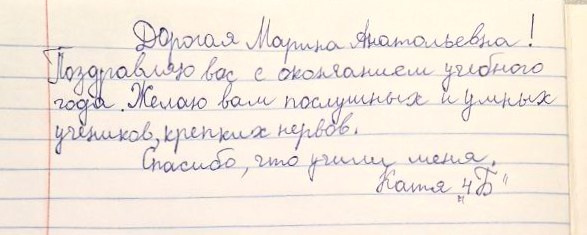 Дорогая Марина Анатольевна!
Поздравляю вас с окончанием учебного
года. Желаю вам послушных и умных
учеников, крепких нервов.
Спасибо, что учили меня.
Катя „4 Б"